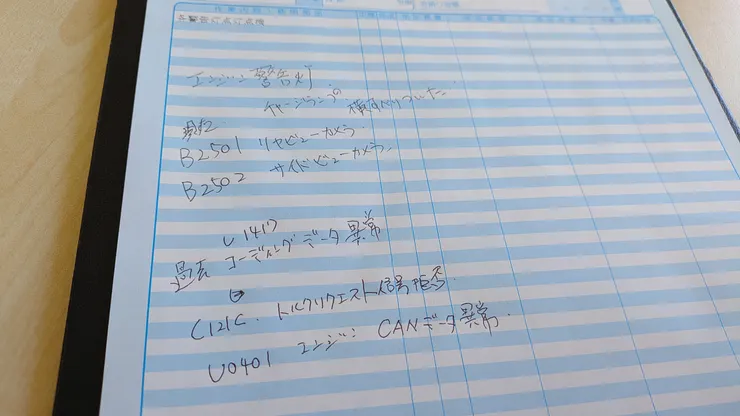 各警告灯点灯点検
エンジン警告灯
チャージランプの
横すべりついた。
現在
B2501 リヤビューカメラ.
B2502 サイドビューカメラ.
U1417
過去 コーディングデータ異常
C121C. トルクリクエスト信号拒否.
U0401 エンジン CANデータ異常.